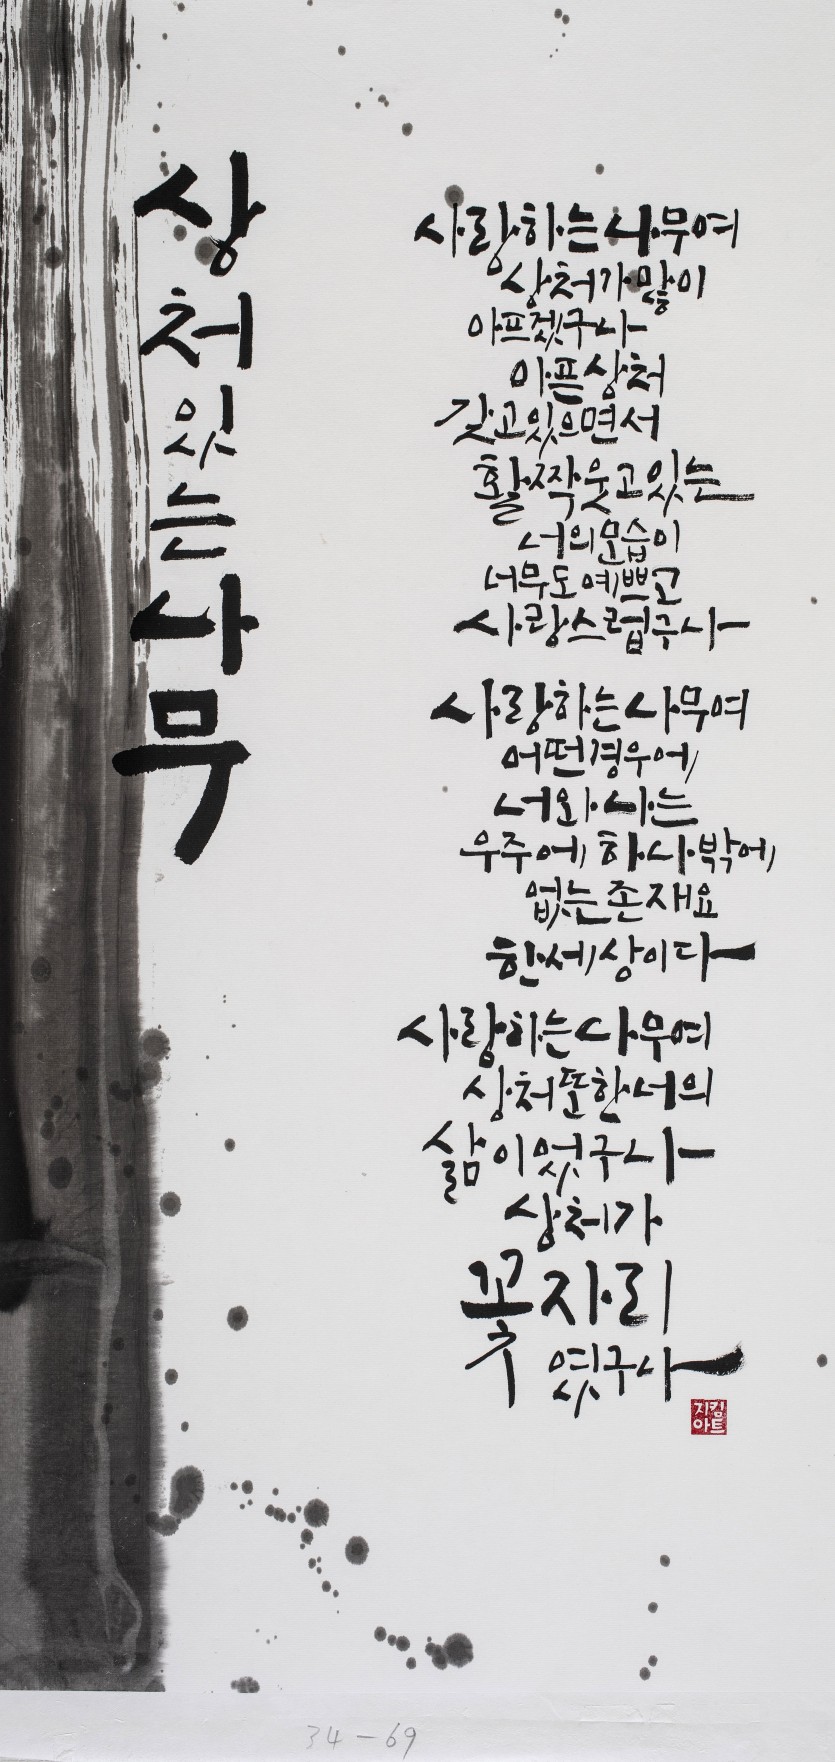 상처있는나무
사랑하는나무여
상처가많이
아프겠구나
아픈상처
갖고있으면서
활짝웃고있는
너의모습이
너무도예쁘고
사랑스럽구나
사랑하는나무여
어떤경우에
너와나는
우주에 하나밖에
없는존재요
한세상이다
사랑하는나무여
상처또한너의
삶이었구나
상처가
꽃자리
였구나
지킴
아트
34-69